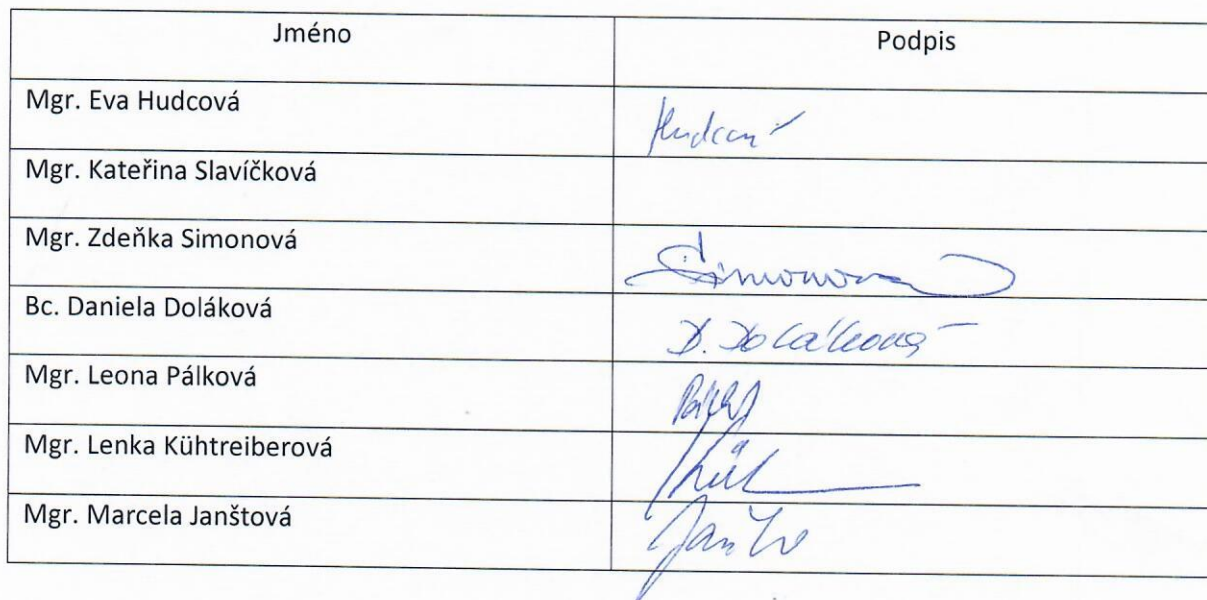 Jméno Podpis
Mgr. Eva Hudcová Hudcová
Mgr. Kateřina Slavíčková
Mgr. Zdeňka Simonová Simonová
Bc. Daniela Doláková D. Doláková
Mgr. Leona Pálková
Mgr. Lenka Kühtreiberová
Mgr. Marcela Janštová